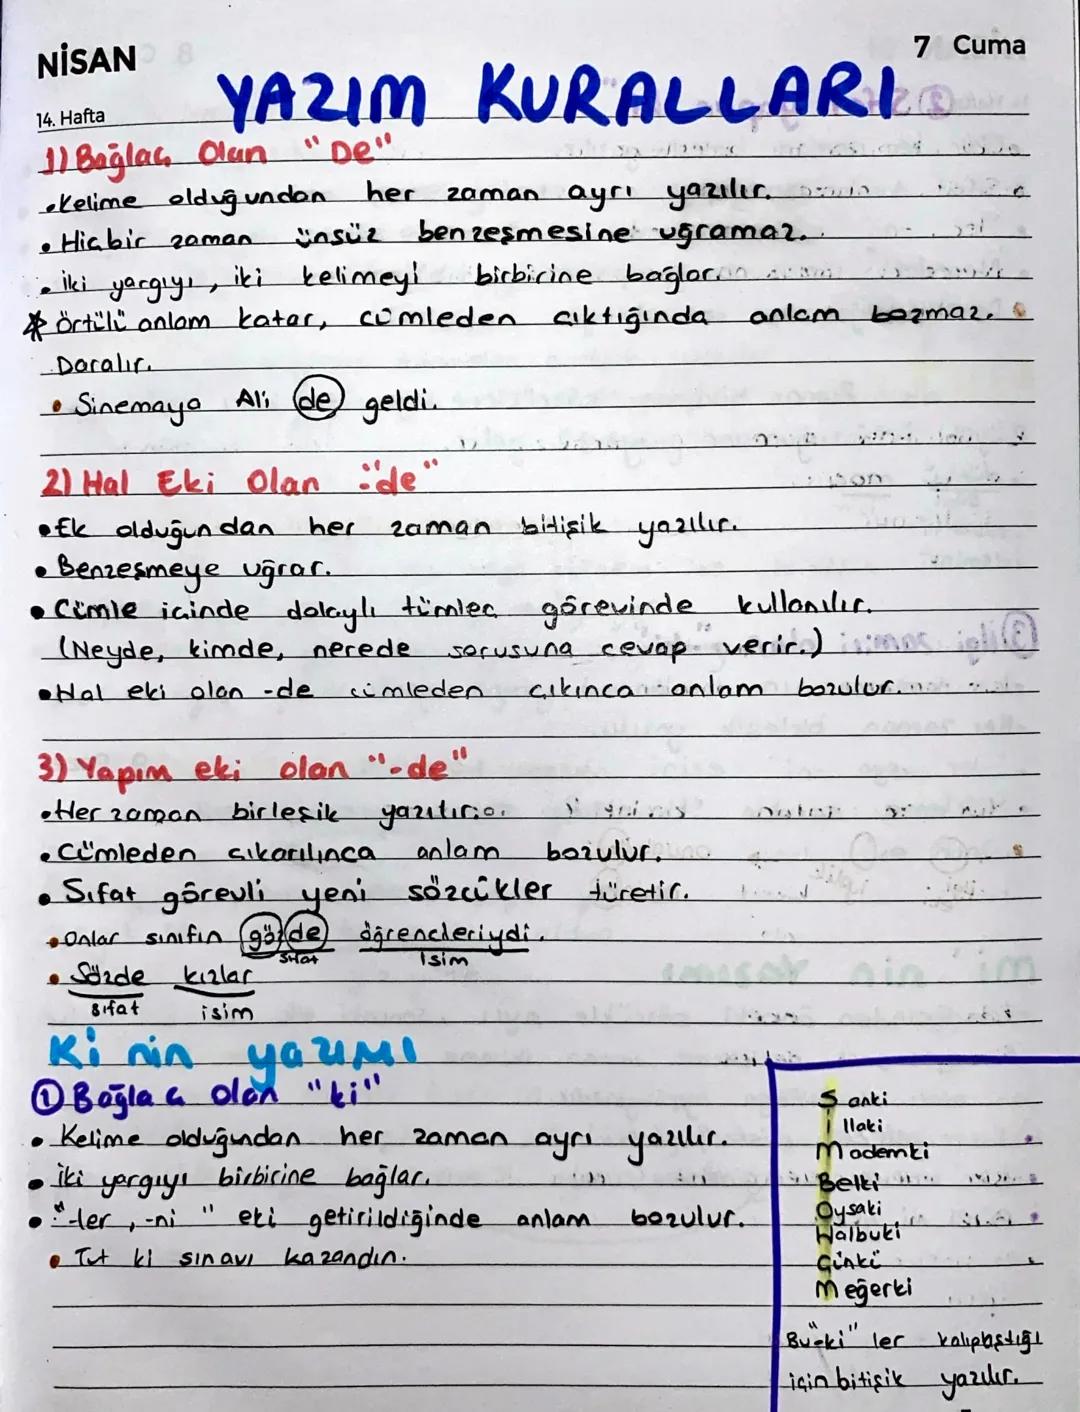 NİSAN
7 Cuma
14. Hafta
YAZIM KURALLARI
1) Bağlaç Olan "De"
• Kelime olduğundan her zaman ayrı yazılır.
• Hiçbir zaman ünsüz benzeşmesine uğramaz.
• İki yargıyı, iki kelimeyi birbirine bağlar.
* Örtülü anlam katar, cümleden çıktığında anlam bozmaz.
Daralır.
• Sinemaya Ali de geldi.
2) Hal Eki Olan "de"
• Ek olduğundan her zaman bitişik yazılır.
• Benzeşmeye uğrar.
• Cümle içinde dolaylı tümleç görevinde kullanılır.
(Neyde, kimde, nerede sorusuna cevap verir.)
• Hal eki olan -de cümleden çıkınca anlam bozulur.
3) Yapım eki olan "-de"
• Her zaman birleşik yazılır.
• Cümleden çıkarılınca anlam bozulur.
• Sıfat görevli yeni sözcükler türetir.
• Onlar sınıfın gözde öğrencileriydi.
sıfat isim
• Sözde kızlar
sıfat isim
Ki nin yazımı
① Bağlaç olan "ki"
• Kelime olduğundan her zaman ayrı yazılır.
• İki yargıyı birbirine bağlar.
• "-ler, -ni" eki getirildiğinde anlam bozulur.
• Tut ki sınavı kazandın.
Sanki
İllaki
Mademki
Belki
Oysaki
Halbuki
Çünkü
Meğerki
Bu "-ki" ler kalıplaştığı
için bitişik yazılır.